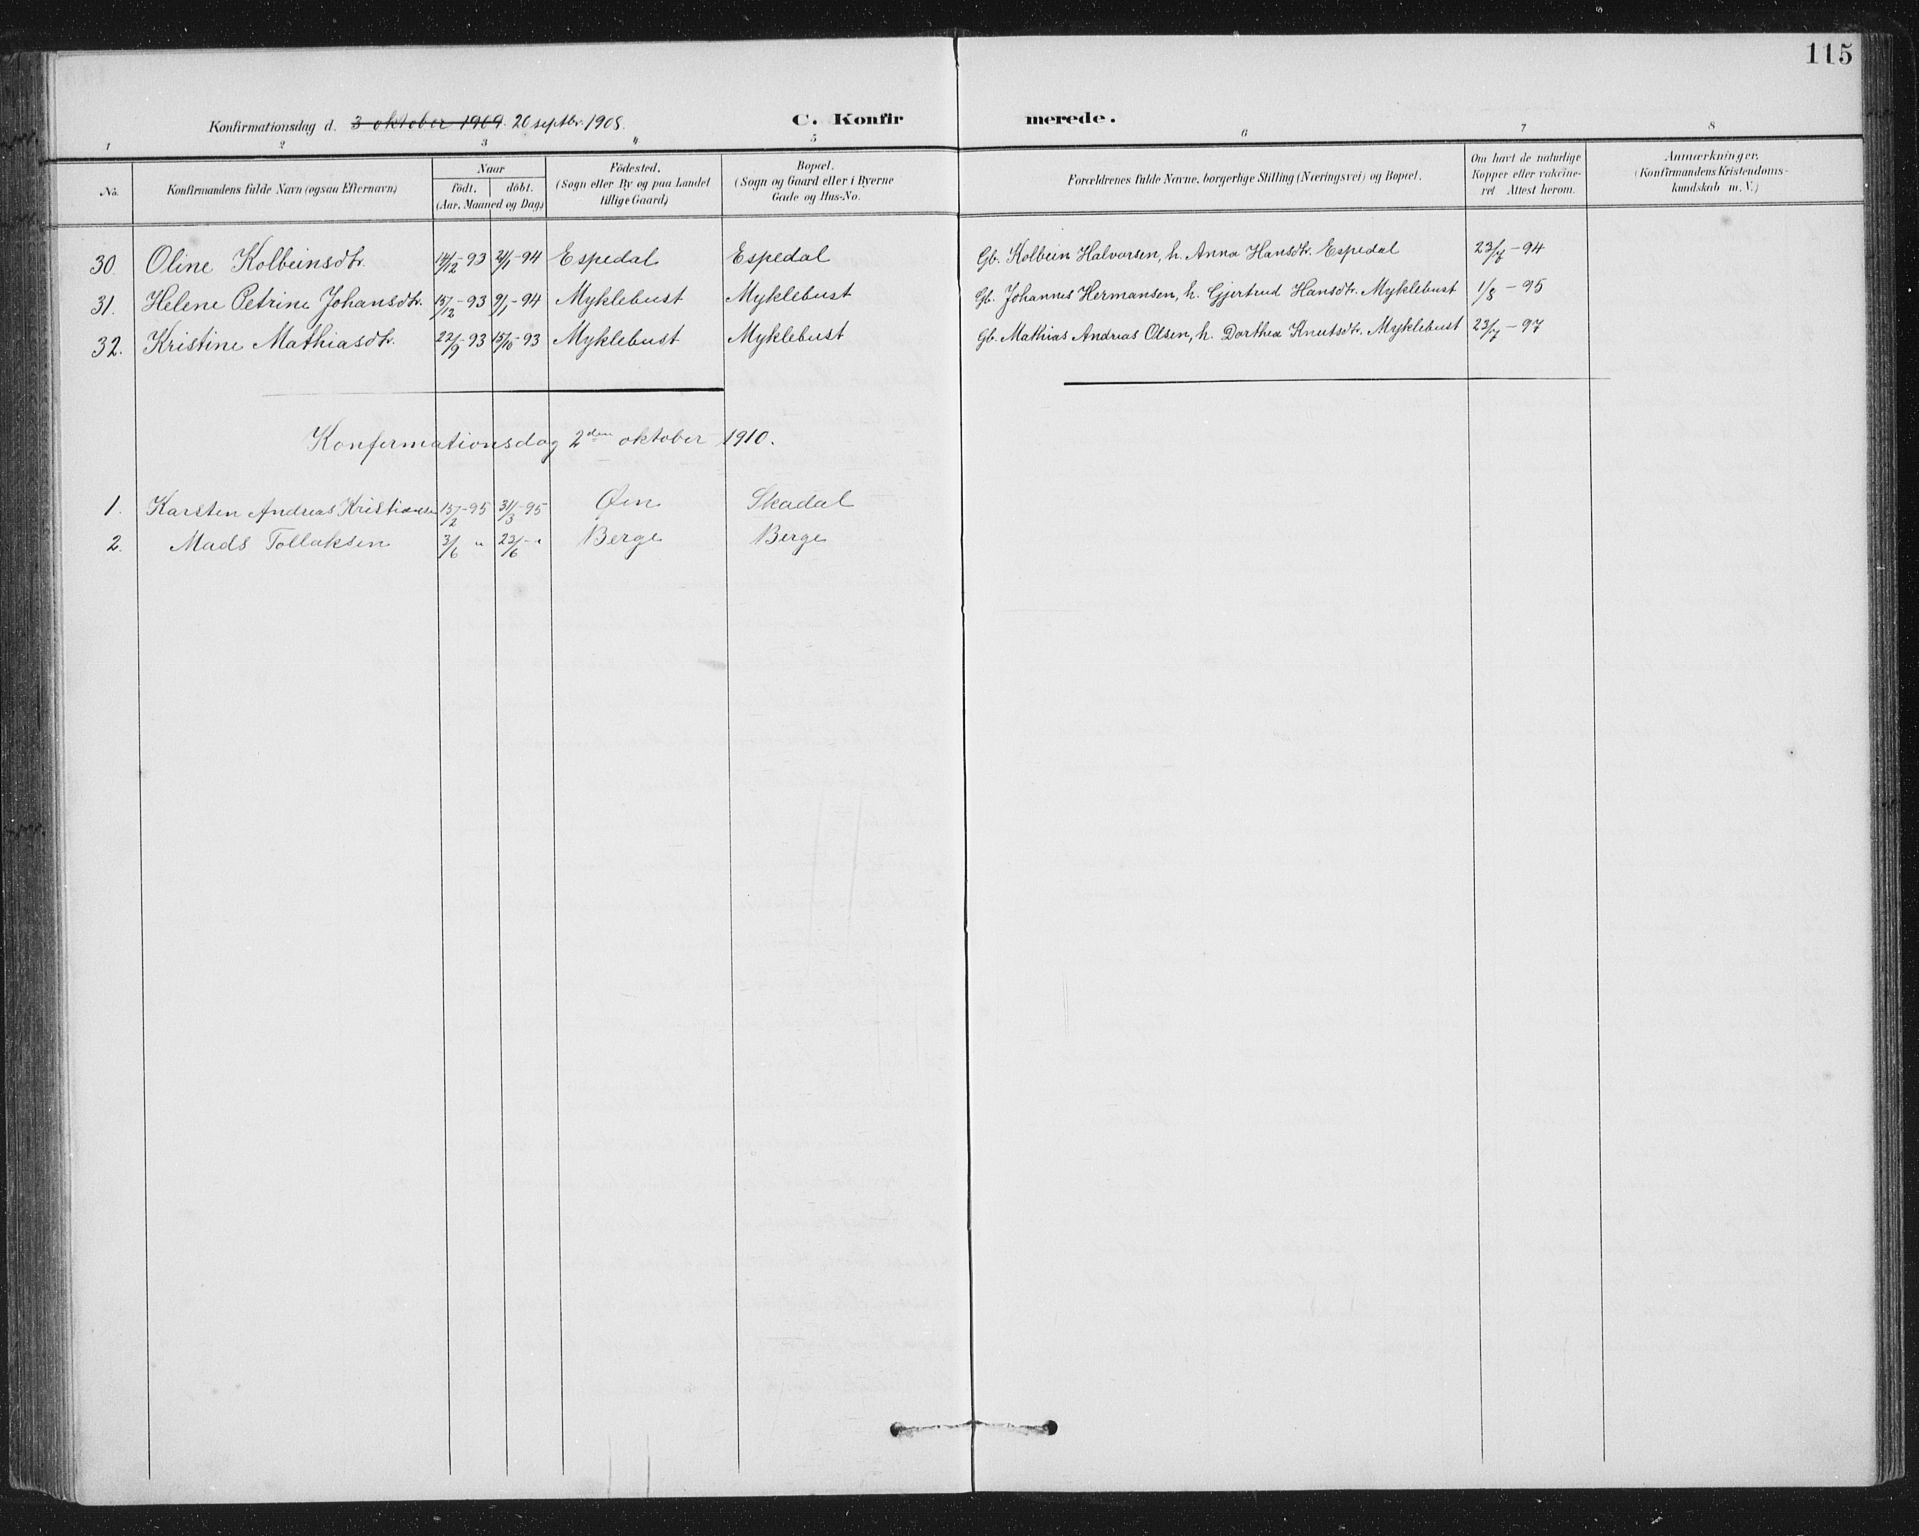 115
Konfirmationsdag d. 3 oktober 1909. 20 septbr. 1908. C. Konfirmerede.
1 2 3 4 5 6 7 8
No. Konfirmandens fulde Navn (ogsaa Efternavn) Naar födt. döbt. (Aar, Maaned og Dag) Födested. (Sogn eller By og paa Landet tillige Gaard) Bopæl. (Sogn og Gaard eller i Byerne Gade og Hus-No. Forældrenes fulde Navne, borgerlige Stilling (Næringsvei) og Bopæl. Om havt de naturlige Kopper eller vakcineret Attest herom. Anmærkninger. (Konfirmandens Kristendomskundskab m. V.)
30. Oline Kolbeinsdtr. 14/12-93 21/1-94 Espedal Espedal Gb. Kolbein Halvorsen, h. Anna Hansdtr. Espedal 23/7-94
31. Helene Petrine Johansdtr. 15/12-93 9/1-94 Myklebust Myklebust Gb. Johannes Hermansen, h. Gjertrud Hansdtr. Myklebust 1/8-95
32. Kristine Mathiasdtr. 22/9-93 15/10-93 Myklebust Myklebust Gb. Mathias Andreas Olsen, h. Dorthea Knutsdtr. Myklebust 23/7-97
Konfermationsdag 2den oktober 1910.
1. Karsten Andreas Kristiansen 15/2-95 31/3-95 Øen Skadal
2. Mads Tollaksen 3/6 " 23/6-" Berge Berge